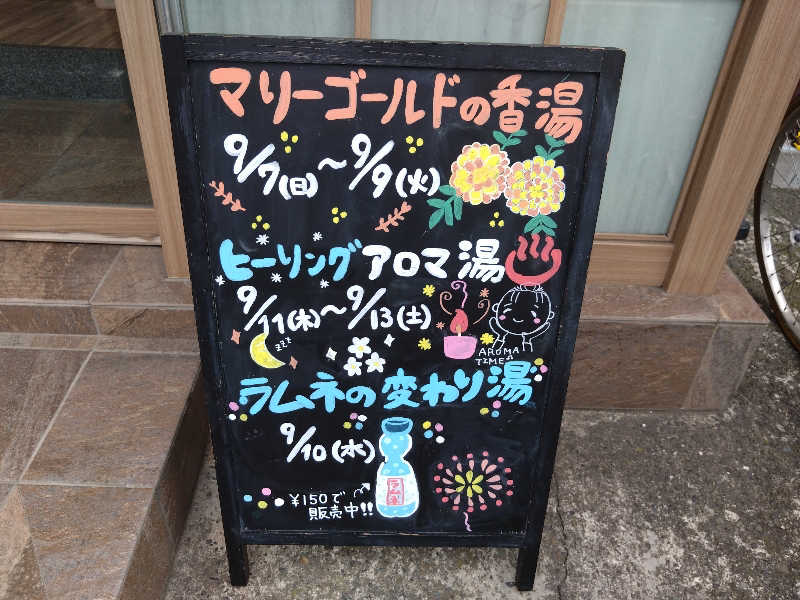 マリーゴールドの香湯
9/7(日)〜9/9(火)
ヒーリングアロマ湯
9/11(木)〜9/13(土)
zzz
AROMA
TIME♫
ラムネの変わり湯
9/10(水)
ラムネ
¥150で
販売中!!